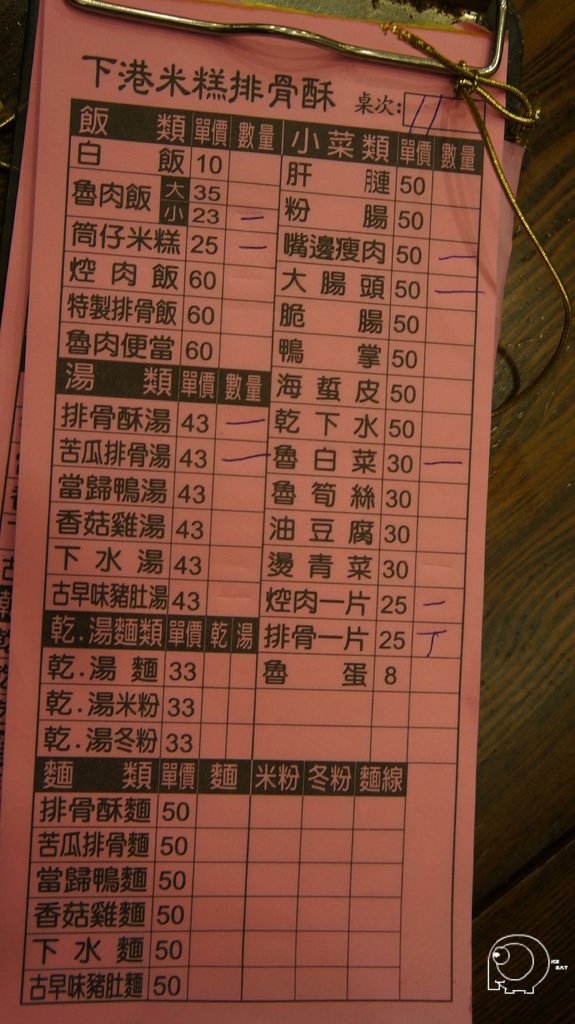 下港米糕排骨酥 桌次: 11
飯類 單價 數量 小菜類 單價 數量
白飯 10 肝膧 50
魯肉飯 大 35 粉腸 50
小 23 一
筒仔米糕 25 一 嘴邊瘦肉 50 一
焢肉飯 60 大腸頭 50 一
特製排骨飯 60 脆腸 50
魯肉便當 60 鴨掌 50
湯類 單價 數量 海蜇皮 50
排骨酥湯 43 一 乾下水 50
苦瓜排骨湯 43 一 魯白菜 30 一
當歸鴨湯 43 魯筍絲 30
香菇雞湯 43 油豆腐 30
下水湯 43 燙青菜 30
古早味豬肚湯 43 焢肉一片 25 一
乾.湯麵類 單價 乾 湯 排骨一片 25 丁
乾.湯麵 33 魯蛋 8
乾.湯米粉 33
乾.湯冬粉 33
麵類 單價 麵 米粉 冬粉 麵線
排骨酥麵 50
苦瓜排骨麵 50
當歸鴨麵 50
香菇雞麵 50
下水麵 50
古早味豬肚麵 50